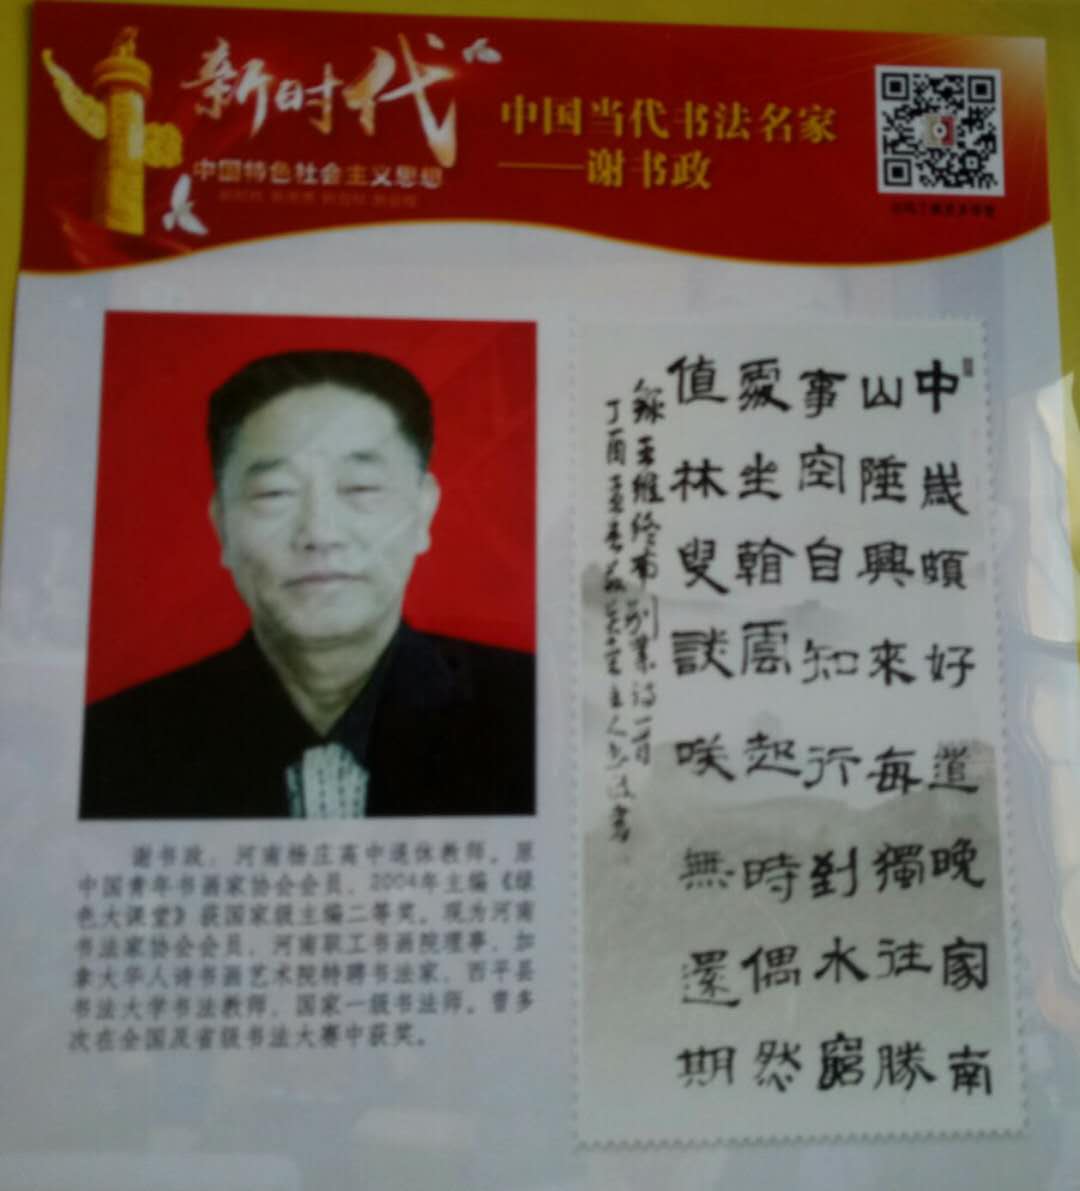 新时代
中国特色社会主义思想
中国当代书法名家
——谢书政
中歲頗好道晚家南
山陲興來每獨往勝
事空自知行到水窮
處坐看雲起時偶然
值林叟談咲無還期
錄王維終南別業诗一首
丁酉孟春
谢书政，河南杨庄高中退休教师。原
中国青年书画家协会会员，2004年主编《绿
色大课堂》获国家级主编二等奖。现为河南
书法家协会会员、河南职工书画院理事、加
拿大华人诗书画艺术院特聘书法家、西平县
书法大学书法教师，国家一级书法师。曾多
次在全国及省级书法大赛中获奖。